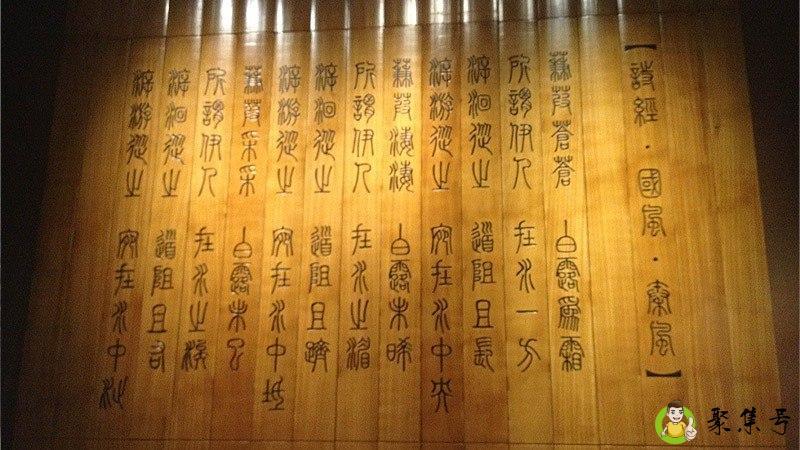 【詩經·國風·秦風】
蒹葭蒼蒼 白露爲霜
所謂伊人 在水一方
溯洄從之 道阻且長
溯游從之 宛在水中央
蒹葭淒淒 白露未晞
所謂伊人 在水之湄
溯洄從之 道阻且躋
溯游從之 宛在水中坻
蒹葭采采 白露未已
所謂伊人 在水之涘
溯洄從之 道阻且右
溯游從之 宛在水中沚
聚集号